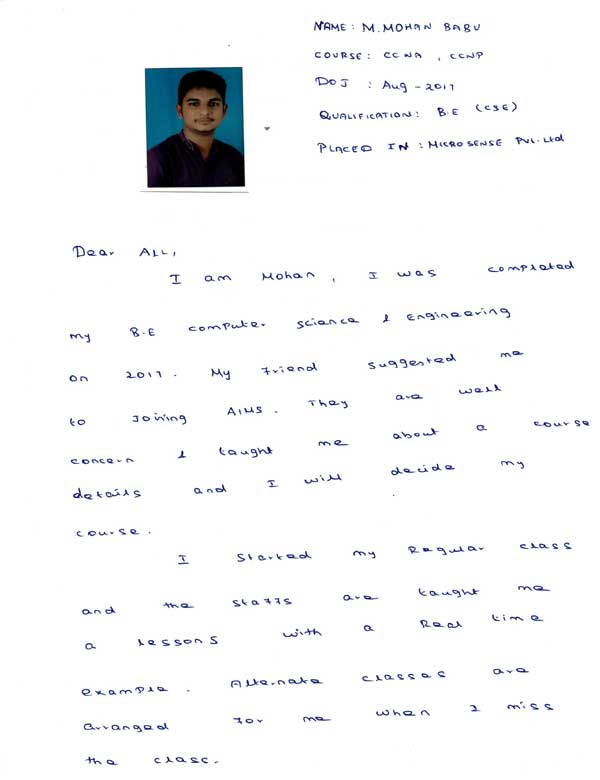 NAME: M. MOHAN BABU
COURSE: CCNA , CCNP
DOJ : Aug - 2017
QUALIFICATION: B.E (CSE)
PLACED IN : MICROSENSE PVt. Ltd
Dear ALL,
I am Mohan, I was complated
my B.E computer science & Engineering
on 2017. My friend suggested me
to Joining AIMS. They are well
concern & taught me about a course
details and I will decide my
course.
I started my Regular class
and the staffs are taught me
a lessons with a Real time
example. Alternate classes are
arranged for me when I miss
the class.